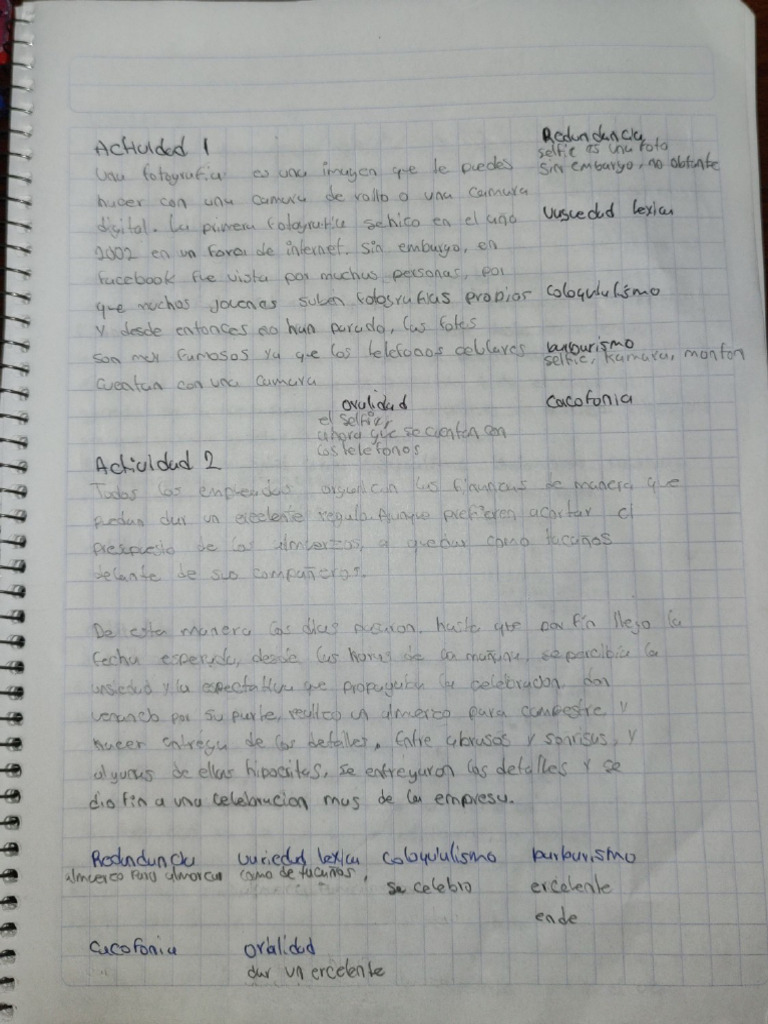 Actividad 1
Redundancia
selfie es una foto
Una fotografia es una imagen que le puedes
sin embargo, no obtante
hacer con una camara de rollo o una camara
digital. La primera fotografia se hico en el año
variedad lexica
2002 en un foro de internet. Sin embargo, en
facebook fue vista por muchas personas, por
que muchos jovenes suben fotografias propias
coloquialismo
y desde entonces no han parado, las fotos
son muy famosos ya que los telefonos celulares
barbarismo
selfie, kamara, monton
cuentan con una camara
oralidad
cacofonia
el selfie,
ahora que se cuentan en
los telefonos
Actividad 2
Todos los empleados organican las finanzas de manera que
puedan dar un ercelente regalo. Aunque prefieren acortar el
presupuesto de los almuerzos, a quedar como tacaños
delante de sus compañeros.
De esta manera los dias pasaron, hasta que por fin llego la
fecha esperada, desde las horas de la mañana, se percibia la
ansiedad y la espectativa que propagaba la celebracion, don
por su parte, realico un almuerco para compartir, y
hacer entrega de los detalles. Entre abrasos y sonrisas, y
algunas de ellas hipocritas, se entregaron los detalles y se
dio fin a una celebracion mas de la empresa.
Redundancia variedad lexica coloquialismo barbarismo
almuerco para almorcar como de tacaños, se celebro ercelente
ende
cacofonia oralidad
dar un ercelente